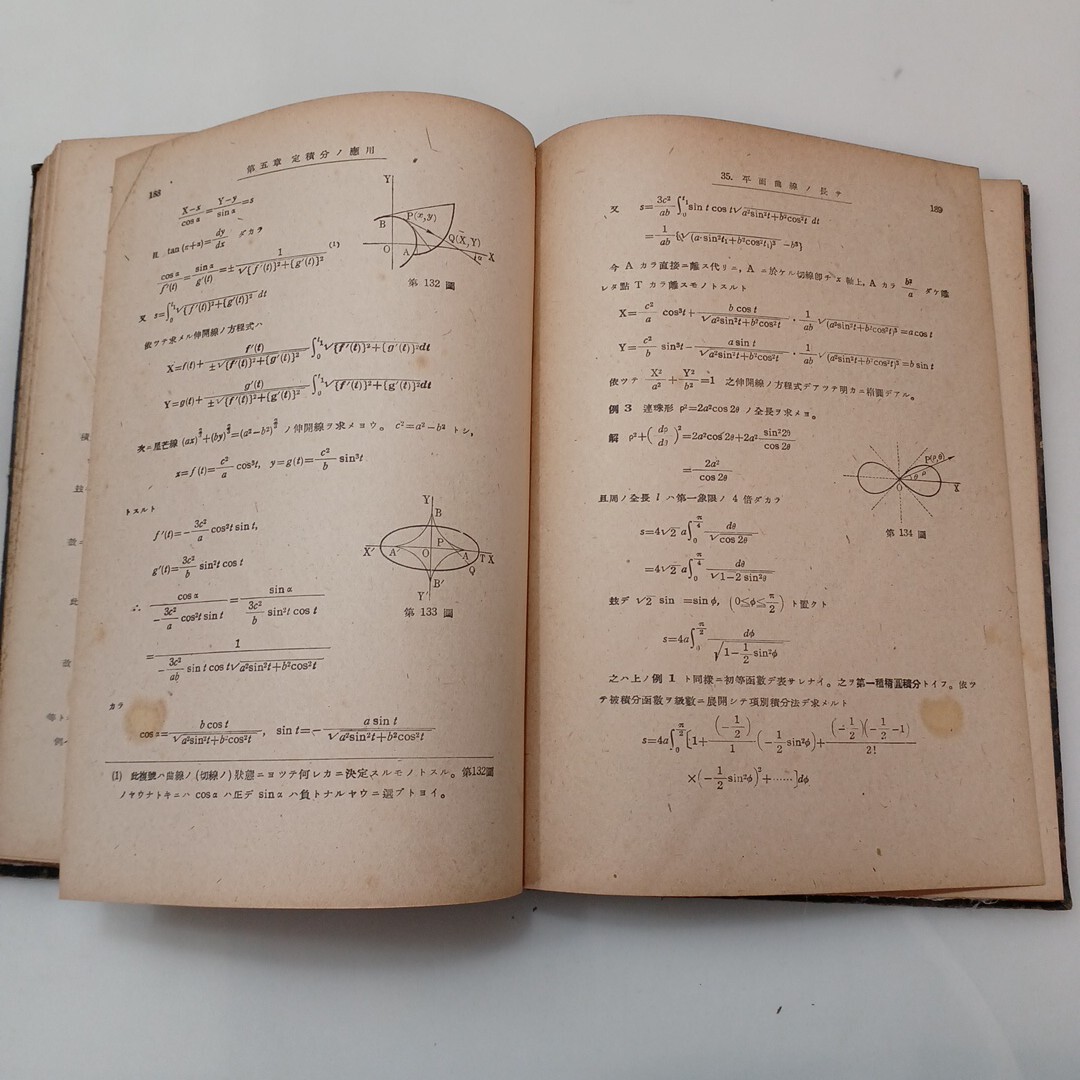 188
第五章 定積分ノ應用
(X-x)/cos α = (Y-y)/sin α = s
且 tan(π+α) = dy/dx ダカラ
cos α/f'(t) = sin α/g'(t) = ± 1/√{f'(t)}²+{g'(t)}² (1)
又 s=∫₀^t₁ √{f'(t)}²+{g'(t)}² dt
依ツテ求メル伸開線ノ方程式ハ
X=f(t)+ f'(t)/(±√{f'(t)}²+{g'(t)}²) ∫₀^t₁ √{f'(t)}²+{g'(t)}² dt
Y=g(t)+ g'(t)/(±√{f'(t)}²+{g'(t)}²) ∫₀^t₁ √{f'(t)}²+{g'(t)}² dt
Y
B
P(x,y)
Q(X,Y)
O
A
α
X
第 132 圖
次ニ星芒線 (ax)^(2/3)+(by)^(2/3)=(a²-b²)^(2/3) ノ伸開線ヲ求メヨウ。 c²=a²-b² トシ,
x=f(t)= c²/a cos³t, y=g(t)= c²/b sin³t
トスルト
f'(t)=- 3c²/a cos²t sin t,
g'(t)= 3c²/b sin²t cos t
∴ cos α/(-3c²/a cos²t sin t) = sin α/(3c²/b sin²t cos t)
= 1/(-3c²/ab sin t cos t√a²sin²t+b²cos²t)
Y
B
X'
A'
O
P
A
T
X
Q
B'
Y'
第 133 圖
カラ
cos α= b cos t/√a²sin²t+b²cos²t, sin t=- a sin t/√a²sin²t+b²cos²t
(1) 此複號ハ曲線ノ(切線ノ)狀態ニヨツテ何レカニ決定スルモノトスル。第132圖
ノヤウナトキニハ cos α ハ正デ sin α ハ負トナルヤウニ選ブトヨイ。
35. 平面曲線ノ長サ
189
又 s= 3c²/ab ∫₀^t₁ sin t cos t√a²sin²t+b²cos²t dt
= 1/ab {√(a²sin²t₁+b²cos²t₁)³ -b³}
今 A カラ直接ニ離ス代リニ, A ニ於ケル切線卽チ x 軸上, A カラ b³/a ダケ離
レタ點 T カラ離スモノトスルト
X= c²/a cos³t+ b cos t/√a²sin²t+b²cos²t · 1/ab √(a²sin²t+b²cos²t)³ =a cos t
Y= c²/b sin³t- a sin t/√a²sin²t+b²cos²t · 1/ab √(a²sin²t+b²cos²t)³ =b sin t
依ツテ X²/a² + Y²/b² =1 之伸開線ノ方程式デアツテ明カニ楕圓デアル。
例 3 連珠形 ρ²=2a²cos 2θ ノ全長ヲ求メヨ。
解 ρ²+(dρ/dθ)²=2a²cos 2θ+2a² sin²2θ/cos 2θ
= 2a²/cos 2θ
P(ρ,θ)
ρ
θ
O
X
第 134 圖
且周ノ全長 l ハ第一象限ノ 4 倍ダカラ
s=4√2 a∫₀^(π/4) dθ/√cos 2θ
=4√2 a∫₀^(π/4) dθ/√1-2 sin²θ
玆デ √2 sin =sin φ, (0≦φ≦π/2) ト置クト
s=4a∫₀^(π/2) dφ/√1-½sin²φ
之ハ上ノ例 1 ト同様ニ初等函數デ表サレナイ。之ヲ第一種楕圓積分トイフ。依ツ
テ被積分函數ヲ級數ニ展開シテ項別積分法デ求メルト
s=4a∫₀^(π/2)[1+ (-½)/1 (-½sin²φ)+ (-½)(-½-1)/2!
×(-½sin²φ)²+……]dφ